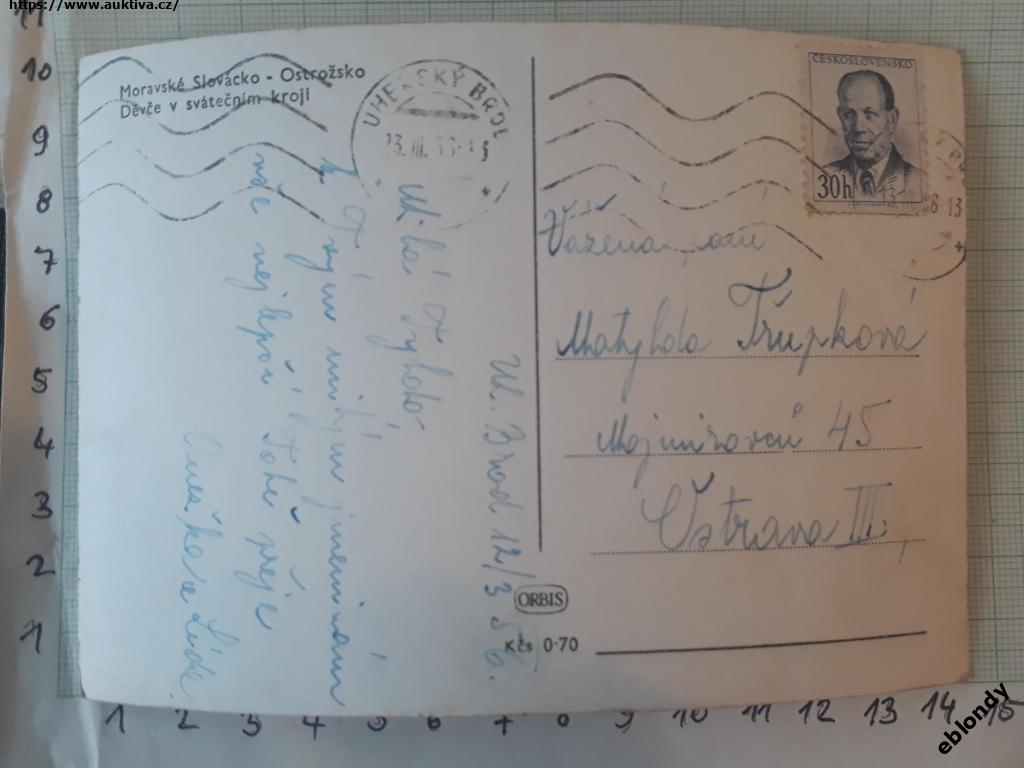 https://www.auktiva.cz/
Moravské Slovácko - Ostrožsko
Děvče v svátečním kroji
UHERSKÝ BROD
ČESKOSLOVENSKO
30h
Uh. Brod 12/3 56.
Milá Tyldo,
k Tvým milým jmeninám
vše nejlepší Tobě přeje
a Lída
Vážená paní
Matylda Třupková
Mojmírovců 45
Ostrava III.,
ORBIS
Kčs 0·70
11
10
9
8
7
6
5
4
3
2
1
1 2 3 4 5 6 7 8 9 10 11 12 13 14 15
eblondy